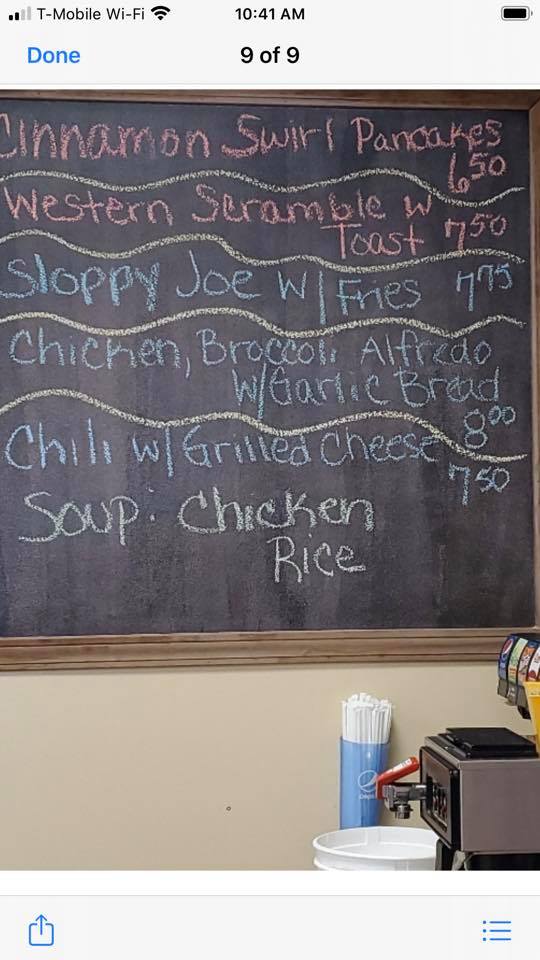 T-Mobile Wi-Fi 10:41 AM
Done 9 of 9
Cinnamon Swirl Pancakes
6 50
Western Scramble w
Toast 7 50
Sloppy Joe W/ Fries 7 75
Chicken, Broccoli Alfredo
W/Garlic Bread
8 00
Chili w/ Grilled Cheese
7 50
Soup. Chicken
Rice
pepsi